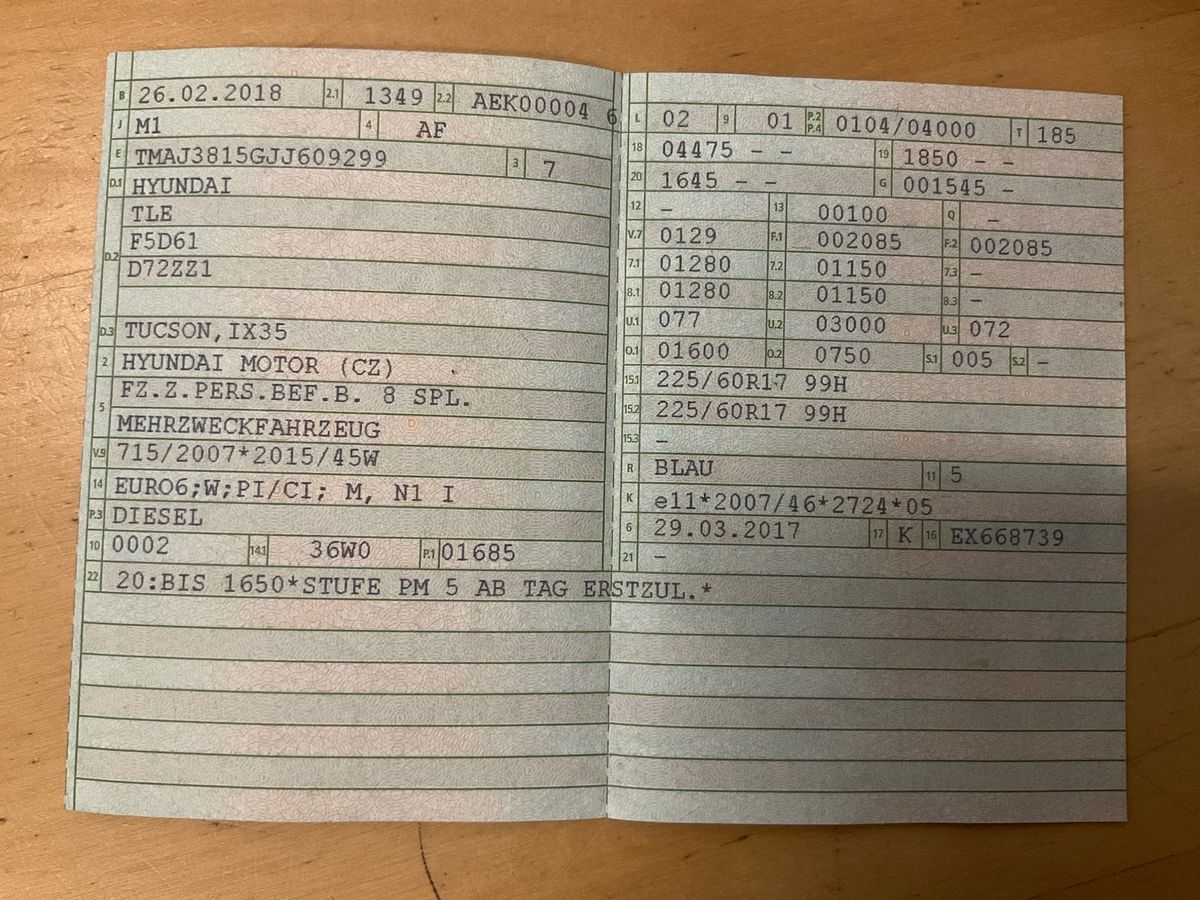 B 26.02.2018 2.1 1349 2.2 AEK00004 6
J M1 4 AF
E TMAJ3815GJJ609299 3 7
D.1 HYUNDAI
TLE
F5D61
D.2 D72ZZ1
D.3 TUCSON,IX35
2 HYUNDAI MOTOR (CZ)
FZ.Z.PERS.BEF.B. 8 SPL.
5 MEHRZWECKFAHRZEUG
V.9 715/2007*2015/45W
14 EURO6;W;PI/CI; M, N1 I
P.3 DIESEL
10 0002 14.1 36W0 P.1 01685
22 20:BIS 1650*STUFE PM 5 AB TAG ERSTZUL.*
L 02 9 01 P.2 P.4 0104/04000 T 185
18 04475 – – 19 1850 – –
20 1645 – – G 001545 –
12 – 13 00100 Q –
V.7 0129 F.1 002085 F.2 002085
7.1 01280 7.2 01150 7.3 –
8.1 01280 8.2 01150 8.3 –
U.1 077 U.2 03000 U.3 072
O.1 01600 O.2 0750 S.1 005 S.2 –
15.1 225/60R17 99H
15.2 225/60R17 99H
15.3 –
R BLAU 11 5
K e11*2007/46*2724*05
6 29.03.2017 17 K 16 EX668739
21 –